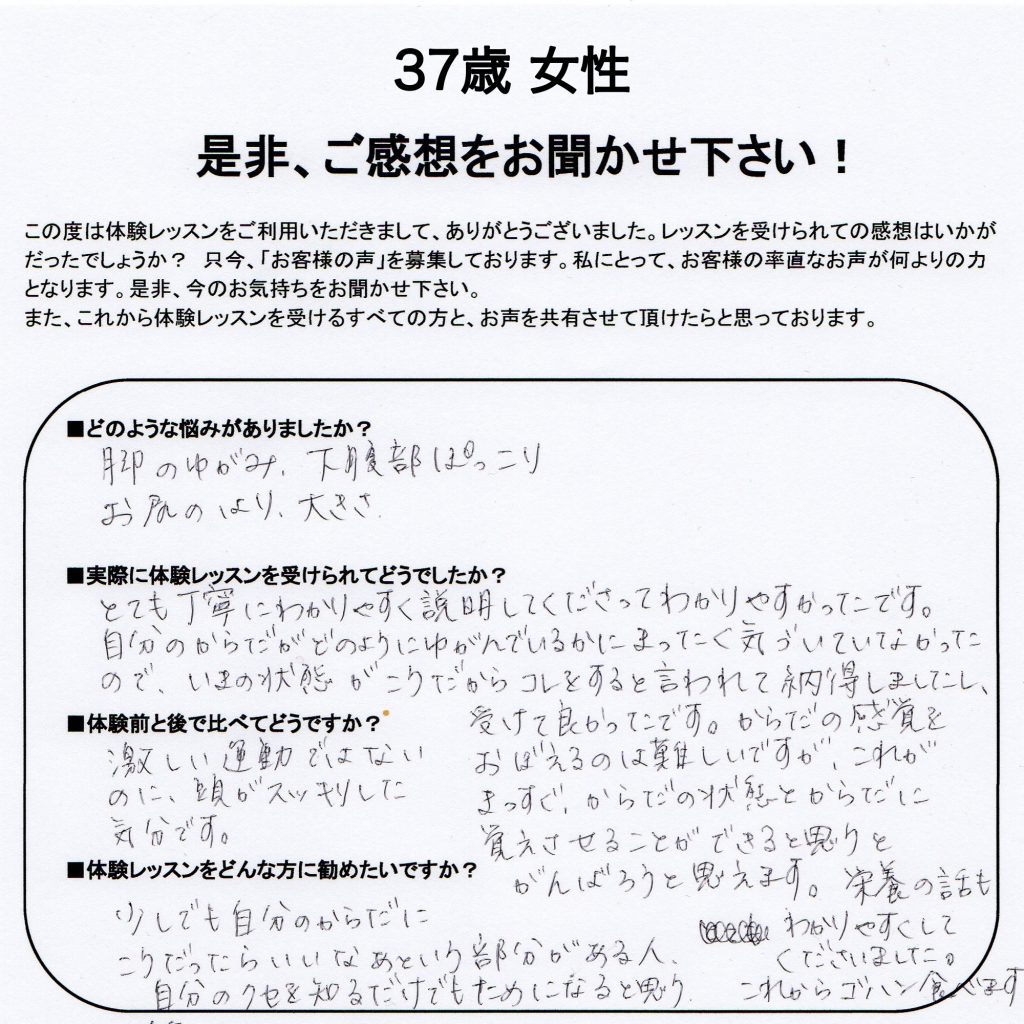 37歳 女性
是非、ご感想をお聞かせ下さい！
この度は体験レッスンをご利用いただきまして、ありがとうございました。レッスンを受けられての感想はいかが
だったでしょうか？ 只今、「お客様の声」を募集しております。私にとって、お客様の率直なお声が何よりの力
となります。是非、今のお気持ちをお聞かせ下さい。
また、これから体験レッスンを受けるすべての方と、お声を共有させて頂けたらと思っております。
■どのような悩みがありましたか？
脚のゆがみ、下腹部ぽっこり
お尻のはり、大きさ
■実際に体験レッスンを受けられてどうでしたか？
とても丁寧にわかりやすく説明してくださってわかりやすかったです。
自分のからだがどのようにゆがんでいるかにまったく気づいていなかった
ので、いまの状態がこうだからコレをすると言われて納得しましたし、
受けて良かったです。からだの感覚を
おぼえるのは難しいですが、これが
まっすぐ、からだの状態とからだに
覚えさせることができると思うと
がんばろうと思えます。栄養の話も
わかりやすくして
くださいました。
これからゴハン食べます
■体験前と後で比べてどうですか？
激しい運動ではない
のに、頭がスッキリした
気分です。
■体験レッスンをどんな方に勧めたいですか？
少しでも自分のからだに
こうだったらいいなあという部分がある人、
自分のクセを知るだけでもためになると思う